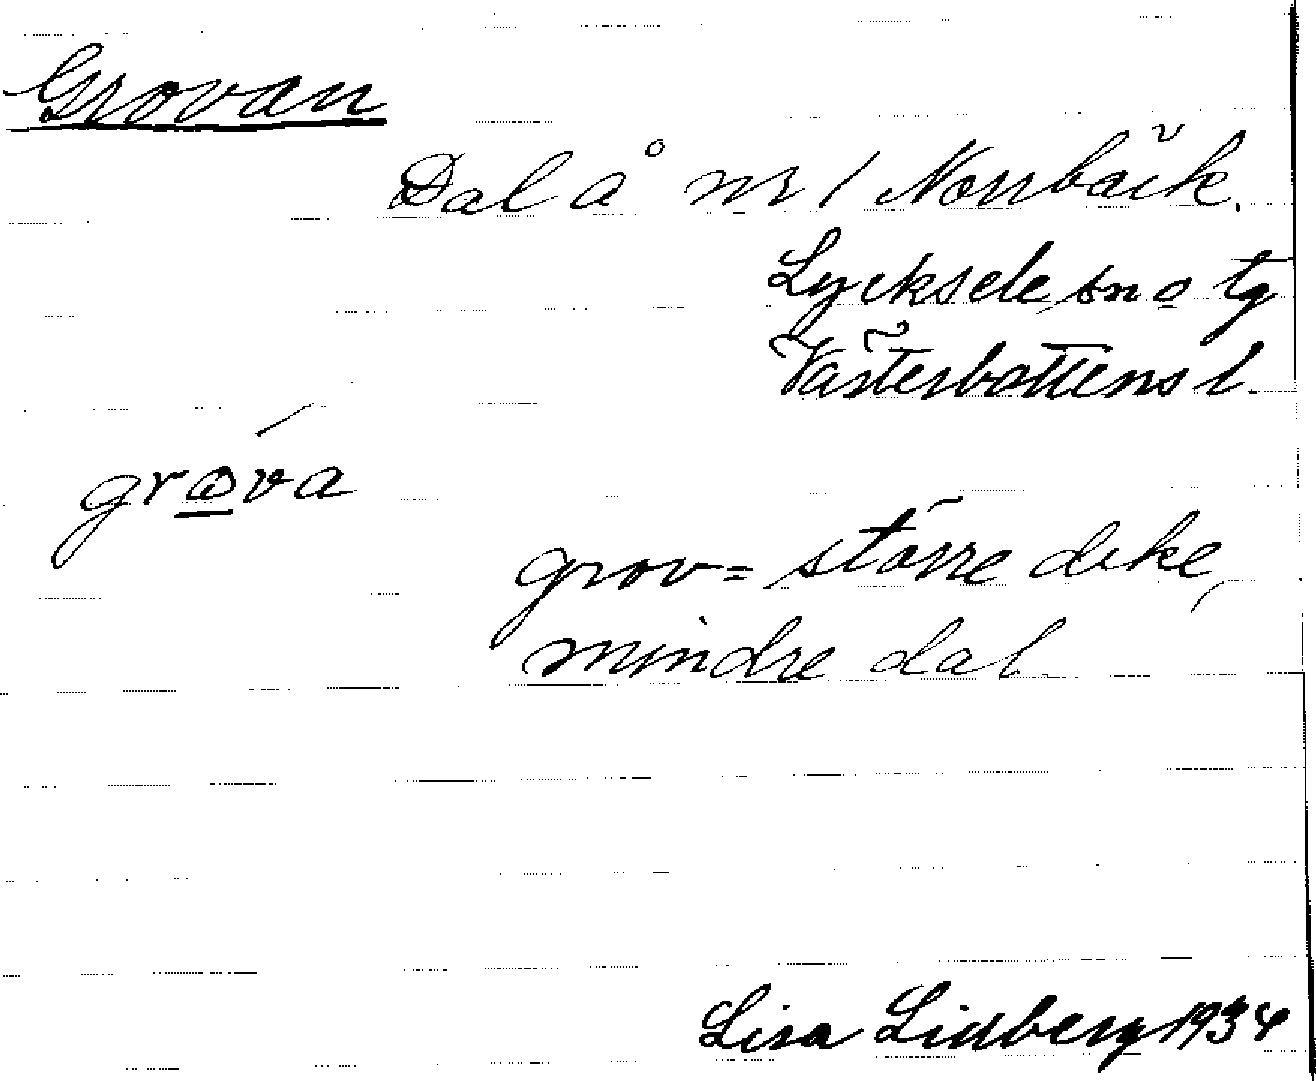 Grovan
Dal å nr 1 Norrbäck.
Lycksele sn o tg
Västerbottens l.
grova
grov = större dike,
mindre dal
Lisa Lidberg 1934